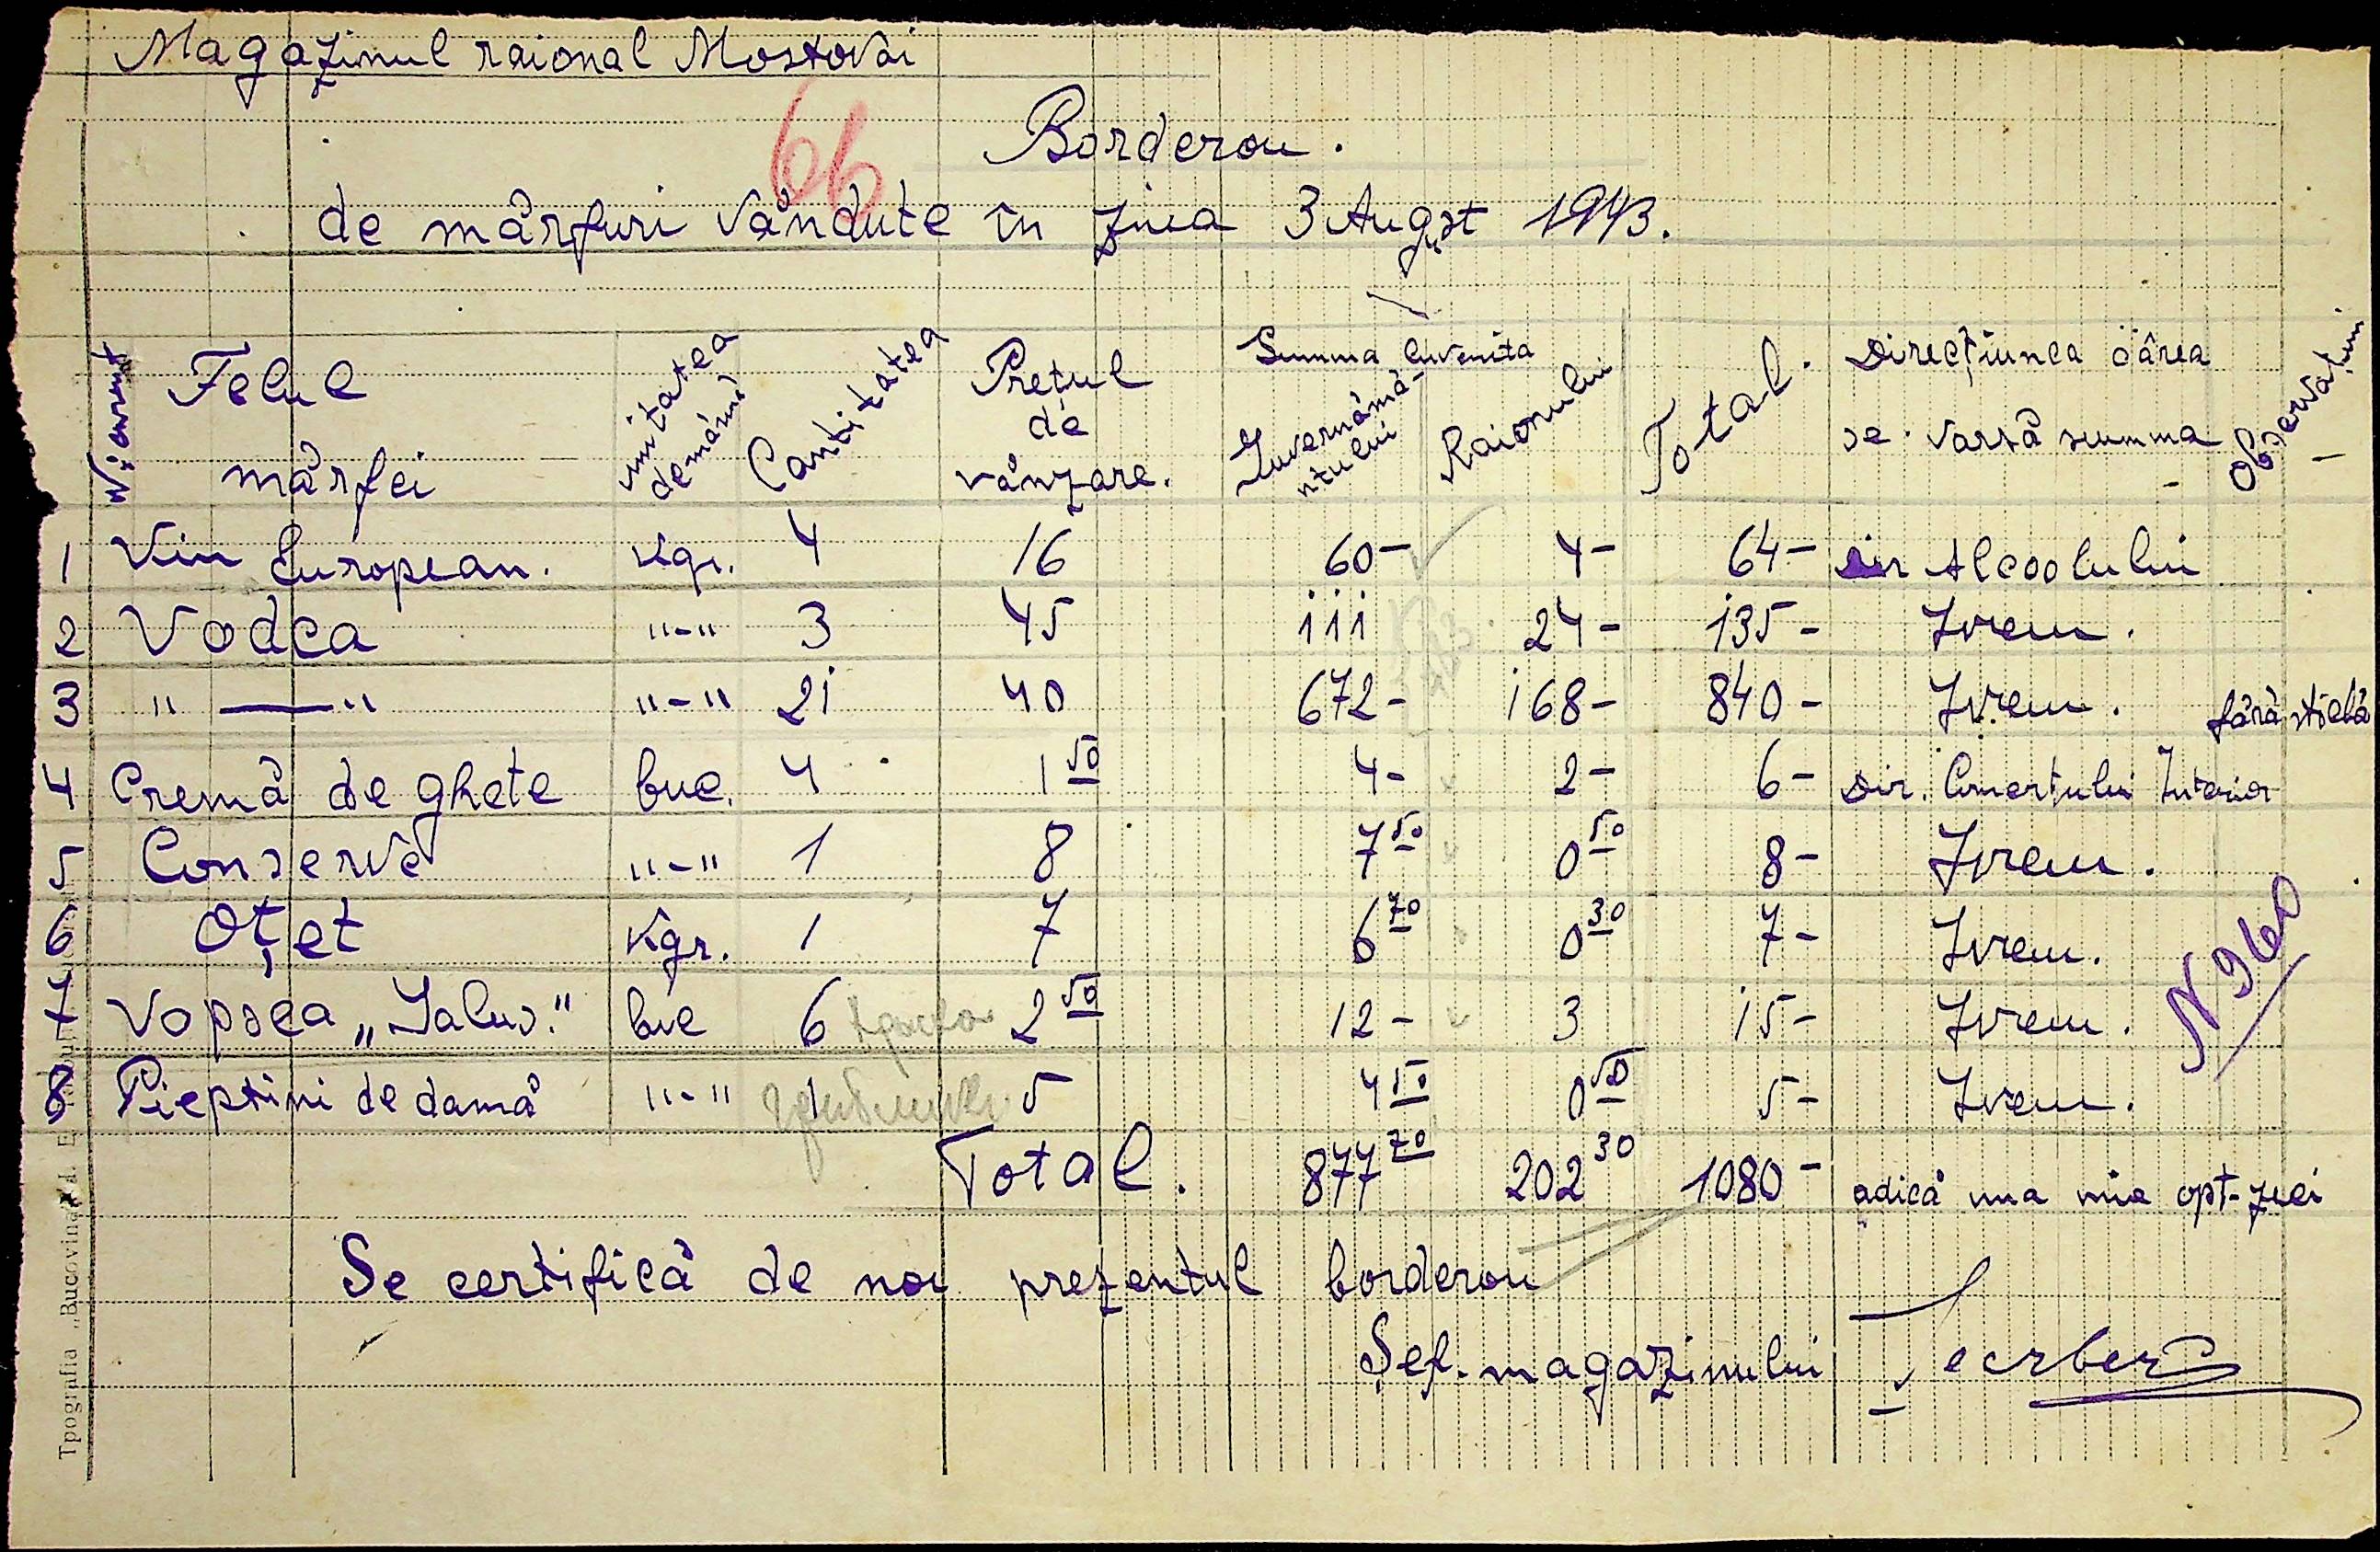 Magazinul raional Mostovoi
66
Borderou.
de mărfuri vândute în ziua 3 August 1943.
N: curent Felul mărfei unitatea de măsură Cantitatea Prețul de vânzare. Summa cuvenita Guvernământului Raionului Total. Direcțiunea cărea se varsă summa Observațiuni
1 Vin European. Kgr. 4 16 60- 4- 64- Dir Alcoolului
2 Vodca "-" 3 45 111 24- 135- Ivrem.
3 "—" "-" 21 40 672- 168- 840- Ivrem. fără sticlă
4 Cremă de ghete buc. 4 1 50 4- 2- 6- Dir. Comerțului Interior
5 Conserve "-" 1 8 7 50 0 50 8- Ivrem.
6 Oțet Kgr. 1 7 6 70 0 30 7- Ivrem.
7 Vopsea „Galus." buc 6 краска 2 50 12- 3 15- Ivrem.
8 Pieptini de damă "-" 1 5 4 50 0 50 5- Ivrem.
N 960
Total. 877 70 202 30 1080- adică una mie opt-zeci
Se certifică de noi prezentul borderou
Șef. magazinului
Tpografia „Bucovina"